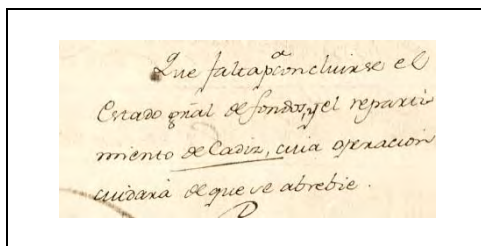 Que falta pᵃ concluirse el
Estado grãl de fondos, y el reparti-
miento de Cadiz, cuia operacion
cuidara de que se abrebie.